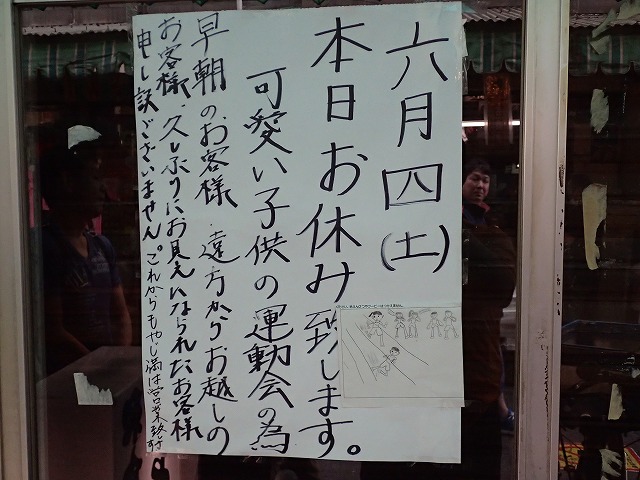 六月四(土)
本日お休み致します。
可愛い子供の運動会の為
早朝のお客様、遠方からお越しの
お客様、久しぶりにお見えになられたお客様
申し訳ございません。これからもやし満は営業致